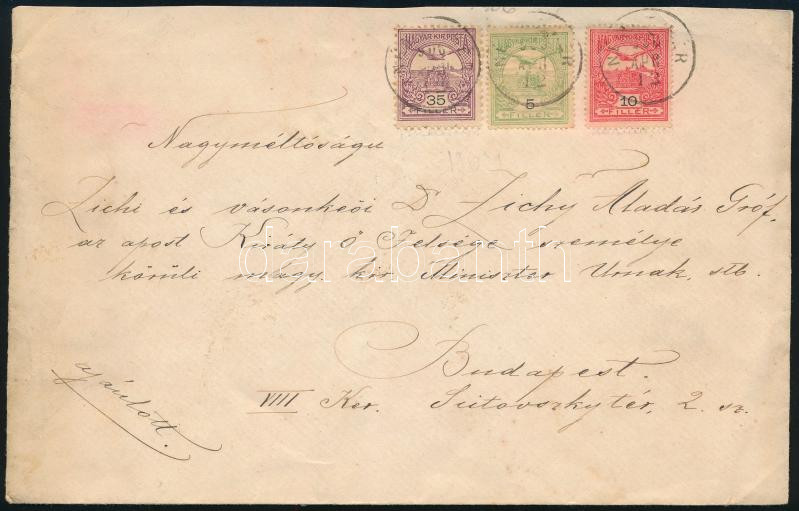 MAGYAR KIR. POSTA MAGYAR KIR. POSTA MAGYAR KIR. POSTA
35 5 10
FILLÉR FILLÉR FILLÉR
Nagyméltóságu
Zichi és vásonkeöi Dr Zichy Aladár Gróf,
az apost Király ő Felsége személye
körüli magy. kir. Miniszter Urnak, stb.
darabanth
Budapest.
ajánlott.
VIII Ker. 2. sz.